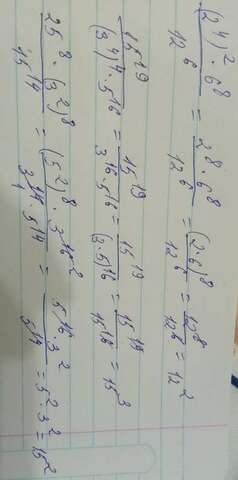 (2⁴)²·6⁸ / 12⁶ = 2⁸·6⁸ / 12⁶ = (2·6)⁸ / 12⁶ = 12⁸ / 12⁶ = 12²
15¹⁹ / (3⁴)⁴·5¹⁶ = 15¹⁹ / 3¹⁶·5¹⁶ = 15¹⁹ / (3·5)¹⁶ = 15¹⁹ / 15¹⁶ = 15³
25⁸·(3²)⁸ / 15¹⁴ = (5²)⁸·3¹⁶ ² / 3¹⁴ ₁·5¹⁴ = 5¹⁶·3² / 5¹⁴ = 5²·3² = 15²